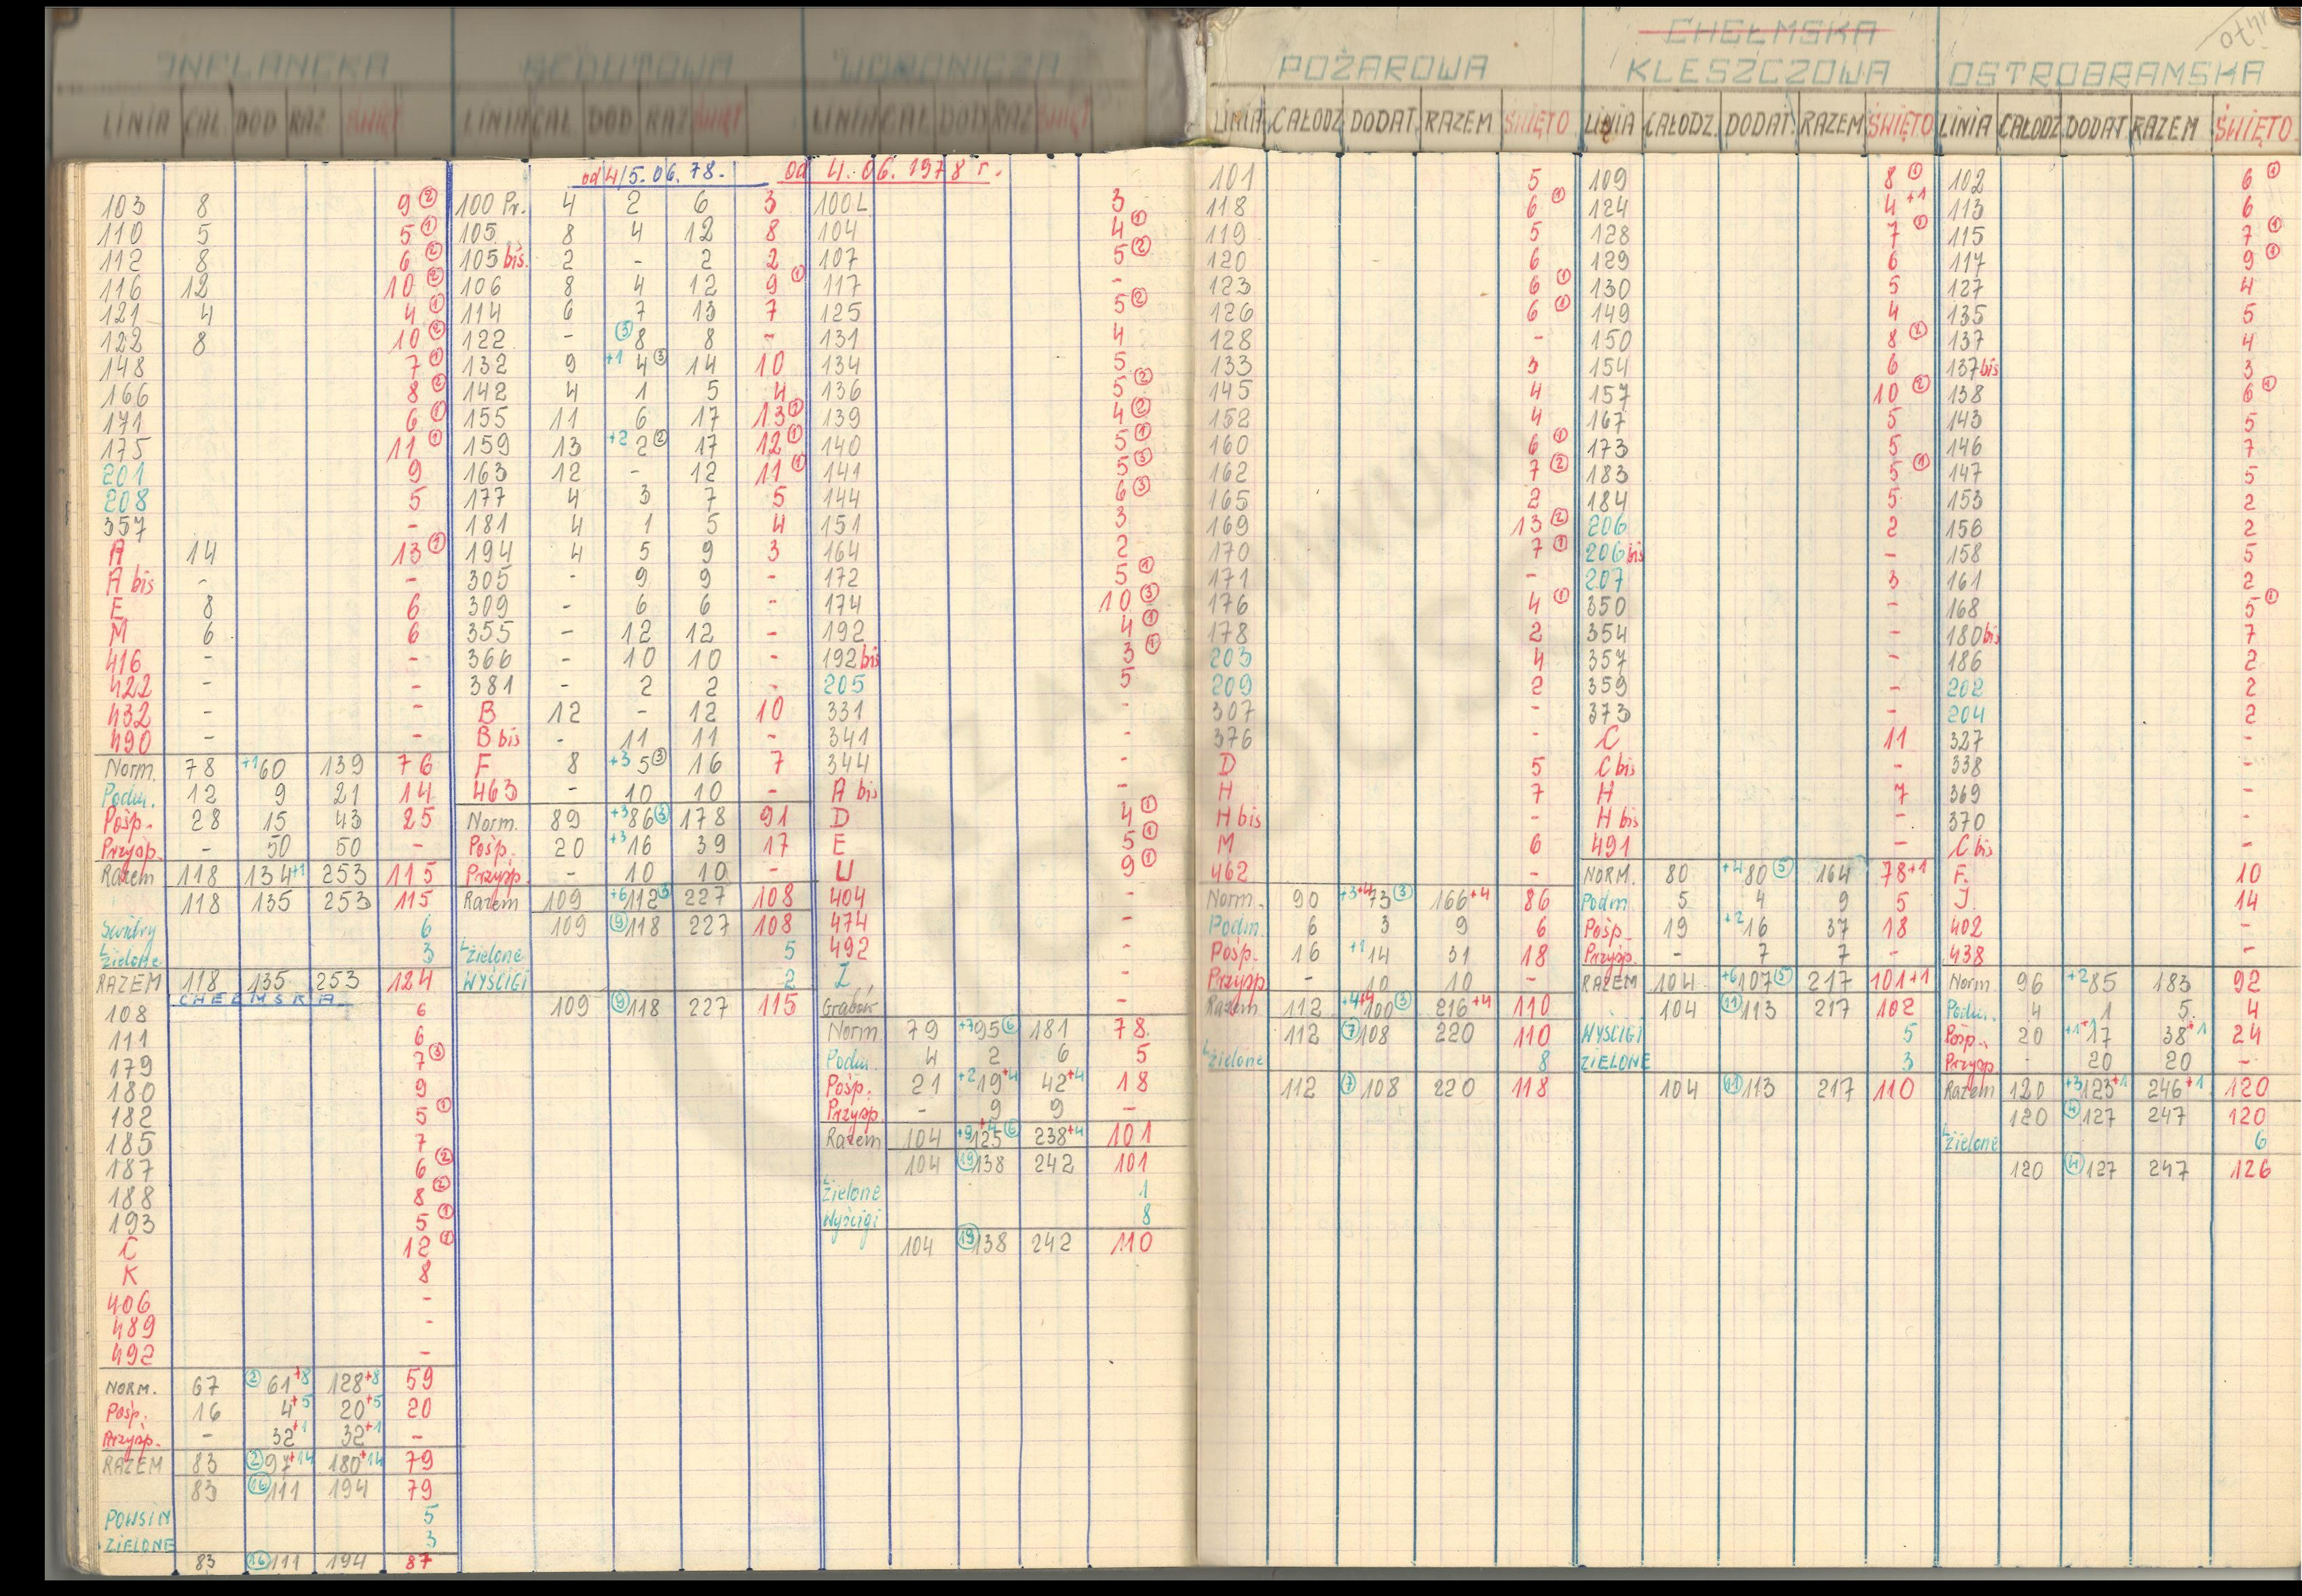 INFLANCKA
LINIA CAŁ. DOD RAZ ŚWIĘT
103 8 9 ②
110 5 5 ①
112 8 6 ②
116 12 10 ②
121 4 4 ①
122 8 10 ②
148 7 ①
166 8 ②
171 6 ①
175 11 ①
201 9
208 5
357 -
A 14 13 ②
A bis - -
E 8 6
M 6 6
416 - -
422 - -
432 - -
490 - -
Norm. 78 +1 60 139 76
Podm. 12 9 21 14
Pośp. 28 15 43 25
Przysp. - 50 50 -
Razem 118 134+1 253 115
118 135 253 115
6
Zielone 3
RAZEM 118 135 253 124
CHEŁMSKA
108 6
111 6
179 7 ③
180 9
182 5 ①
185 7
187 6 ②
188 8 ②
193 5 ①
C 12 ①
K 8
406 -
489 -
492 -
NORM. 67 ② 61+8 128+8 59
Pośp. 16 4+5 20+5 20
Przysp. - 32+1 32+1 -
RAZEM 83 ② 97+14 180+14 79
83 ⑯ 111 194 79
POWSIN 5
ZIELONE 3
83 ⑯ 111 194 87
REDUTOWA
LINIA CAŁ DOD RAZ ŚWIĘT
od 4/5.06.78.
100 Pr. 4 2 6 3
105 8 4 12 8
105 bis. 2 - 2 2
106 8 4 12 9 ①
114 6 7 13 7
122 - ③ 8 8 -
132 9 +1 4 ③ 14 10
142 4 1 5 4
155 11 6 17 13 ②
159 13 +2 2 ② 17 12 ①
163 12 - 12 11 ①
177 4 3 7 5
181 4 1 5 4
194 4 5 9 3
305 - 9 9 -
309 - 6 6 -
355 - 12 12 -
366 - 10 10 -
381 - 2 2 -
B 12 - 12 10
B bis - 11 11 -
F 8 +3 5 ③ 16 7
463 - 10 10 -
Norm. 89 +3 86 ③ 178 91
Pośp. 20 +3 16 39 17
Przysp. - 10 10 -
Razem 109 +6 112 ③ 227 108
109 ⑨ 118 227 108
Zielone 5
WYŚCIGI 2
109 ⑨ 118 227 115
WORONICZA
LINIA CAŁ DOD RAZ ŚWIĘT
od 4.06.1978 r.
100L 3
104 4 ①
107 5 ②
117 -
125 5 ②
131 4
134 5
136 5 ②
139 4 ②
140 5 ①
141 5 ③
144 6 ③
151 3
164 2
172 5 ①
174 10 ③
192 4 ①
192 bis 3 ①
205 5
331 -
341 -
344 -
A bis -
D 4 ①
E 5 ①
U 9 ①
404 -
474 -
492 -
Z -
Grabów -
Norm. 79 +7 95 ⑥ 181 78
Podm. 4 2 6 5
Pośp. 21 +2 19+4 42+4 18
Przysp. - 9 9 -
Razem 104 +9 125+4 ⑥ 238+4 101
104 ⑲ 138 242 101
Zielone 1
Wyścigi 8
104 ⑲ 138 242 110
POŻAROWA
LINIA CAŁODZ. DODAT. RAZEM ŚWIĘTO
101 5
118 6 ①
119 5
120 6
123 6 ①
126 6 ①
128 -
133 3
145 4
152 4
160 6 ①
162 7 ②
165 2
169 13 ②
170 7 ①
171 -
176 4 ①
178 2
203 4
209 2
307 -
376 -
D 5
H 7
H bis -
M 6
462 -
Norm. 90 +3+4 73 ③ 166+4 86
Podm. 6 3 9 6
Pośp. 16 +1 14 31 18
Przysp - 10 10 -
Razem 112 +4+4 100 ③ 216+4 110
112 ⑦ 108 220 110
Zielone 8
112 ⑦ 108 220 118
CHEŁMSKA
KLESZCZOWA
LINIA CAŁODZ. DODAT. RAZEM ŚWIĘTO
109 8 ①
124 4 +1
128 7 ①
129 6
130 5
149 4
150 8 ②
154 6
157 10 ②
167 5
173 5
183 5 ①
184 5
206 2
206 bis -
207 3
350 -
354 -
357 -
359 -
373 -
C 11
C bis -
H 7
H bis -
491 -
NORM. 80 +4 80 ⑤ 164 78+1
Podm 5 4 9 5
Pośp. 19 +2 16 37 18
Przysp. - 7 7 -
RAZEM 104 +6 107 ⑤ 217 101+1
104 ⑪ 113 217 102
WYŚCIGI 5
ZIELONE 3
104 ⑪ 113 217 110
OSTROBRAMSKA
LINIA CAŁODZ. DODAT RAZEM ŚWIĘTO
102 6 ①
113 6
115 7 ①
117 9 ①
127 4
135 5
137 4
137 bis 3
138 6 ①
143 5
146 7
147 5
153 2
156 2
158 5
161 2
168 5 ①
180 bis 7
186 2
202 2
204 2
327 -
338 -
369 -
370 -
C bis -
F. 10
J. 14
402 -
438 -
Norm. 96 +2 85 183 92
Podm. 4 1 5 4
Pośp. 20 +1+1 17 38+1 24
Przysp - 20 20 -
Razem 120 +3 123+1 246+1 120
120 ④ 127 247 120
Zielone 6
120 ④ 127 247 126